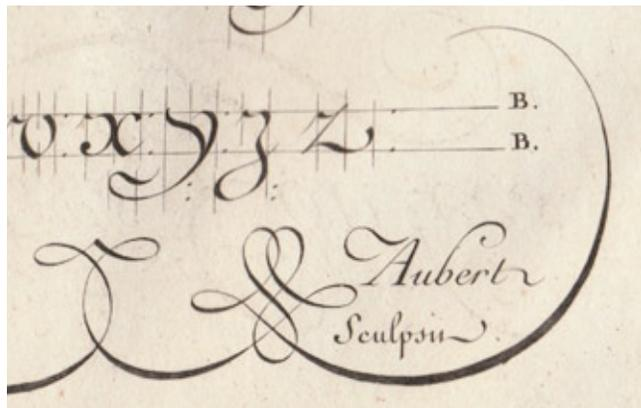 v x y z z B.
B.
Aubert
Sculpsit